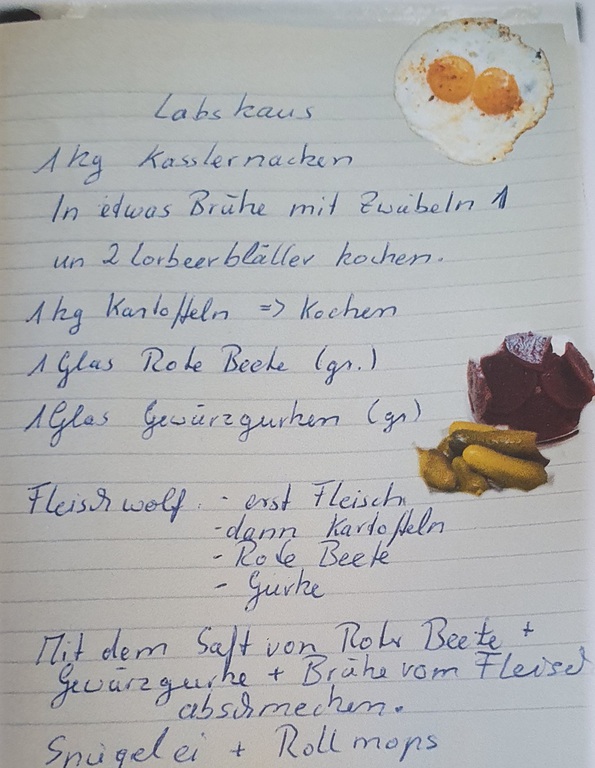 Labskaus
1 kg Kasslernacken
In etwas Brühe mit Zwübeln 1
un 2 Lorbeerblätter kochen.
1 kg Kartoffeln => Kochen
1 Glas Rote Beete (gr.)
1 Glas Gewürzgurken (gr)
Fleischwolf: - erst Fleisch
- dann Kartoffeln
- Rote Beete
- Gurke
Mit dem Saft von Rote Beete +
Gewürzgurke + Brühe vom Fleisch
abschmecken.
Spiegelei + Rollmops